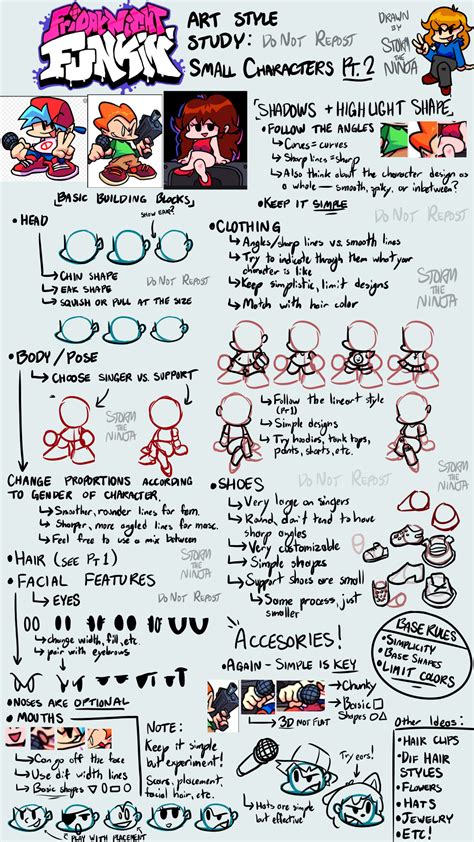 FRIDAY NIGHT
FUNKIN'
ART STYLE
STUDY: DO NOT REPOST
SMALL CHARACTERS PT. 2
DRAWN
BY
STORM
THE
NINJA
SHADOWS + HIGHLIGHT SHAPE
•FOLLOW THE ANGLES
↳Curves = curves
↳Sharp lines = sharp
↳Also think about the character design as
a whole — smooth, spiky, or inbetween?
•KEEP IT SIMPLE
DO NOT REPOST
BASIC BUILDING BLOCKS
SHOW EAR?
•HEAD
↳CHIN SHAPE
↳EAR SHAPE
↳SQUISH OR PULL AT THE SIZE
DO NOT REPOST
•CLOTHING
↳Angles/sharp lines vs. smooth lines
↳Try to indicate through them what your
character is like
↳Keep simplistic, limit designs
↳Match with hair color
STORM
THE
NINJA
•BODY/POSE
↳CHOOSE SINGER VS. SUPPORT
STORM
THE
NINJA
↳Follow the lineart style
(Pt 1)
↳Simple designs
↳Try hoodies, tank tops,
pants, shorts, etc.
DO NOT REPOST
CHANGE PROPORTIONS ACCORDING
TO GENDER OF CHARACTER.
↳Smoother, rounder lines for fem.
↳Sharper, more angled lines for masc.
↳Feel free to use a mix between
•SHOES
↳Very large on singers
↳Round, don't tend to have
sharp angles
↳Very customizable
↳Simple shapes
↳Support shoes are small
↳Same process, just
smaller
•HAIR (SEE PT 1)
STORM
THE
NINJA
•FACIAL FEATURES
↳EYES
DO NOT REPOST
↳change width, fill, etc
↳pair with eyebrows
•NOSES ARE OPTIONAL
•MOUTHS
↳Can go off the face
↳Use dif width lines
↳Basic shapes
↳PLAY WITH PLACEMENT
NOTE:
Keep it simple
but experiment!
Scars, placement,
facial hair, etc.
ACCESORIES!
•AGAIN - SIMPLE IS KEY
↳Chunky
↳Basic
Shapes
↳3D NOT FLAT
Try ears!
↳Hats are simple
but effective
BASE RULES
•SIMPLICITY
•BASE SHAPES
•LIMIT COLORS
OTHER IDEAS:
•HAIR CLIPS
•DIF HAIR
STYLES
•FLOWERS
•HATS
•JEWELRY
•ETC!